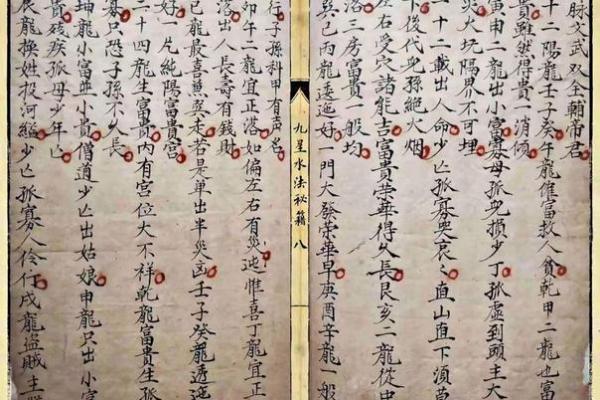 脉文武双全辅帝君
十二陽龍壬子癸午龍催富救人貧乾甲二龍也富
貴雖然得貴一消傾
寅甲二龍出小富寡母孤兒損少丁孤虚到頭主大
災火坑陽界不可埋
二十二載出人命少亡孤寡哭哀哀直山直下須
下後代兒孫絕火烟
左右受穴諸能吉富貴荣華得久長艮亥二龍從中
落三房富貴一般均
巽巳丙龍逶迤好一門大發荣華早庚酉辛龍一般
九星水法秘籍 八
行子孫科甲有声名
卯午二龍宜正落如偏左右有災迍惟喜丁龍宜正
落出人長壽有錢財
巳龍最喜兼巽未若是单出半災凶壬子癸龍逶迤
好一片純陽富貴宫
二十四龍生富貴内有宫位大不祥乾龍富貴生孤
寡只恐子孫不久長
坤龍小富並小貴僧道少亡出姑娘申龍只出小富
貴殘疾孤母少年亡
辰龍換姓投河縊少亡孤寡人伶仃戌龍盗賊主